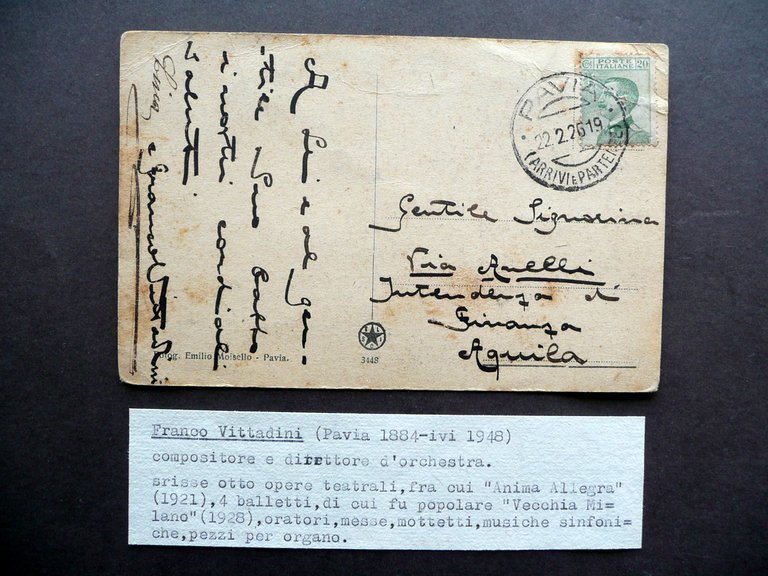 A Lei e al gen-
tile Suo babbo
i nostri cordiali
saluti
Lina e Franco Vittadini
Fotog. Emilio Moisello - Pavia.
3448
Cmi POSTE ITALIANE 20
PAVIA
22.2.26 19
(ARRIVI E PARTENZE)
Gentile Signorina
Via Anelli
Intendenza di
Finanza
Aquila
Franco Vittadini (Pavia 1884-ivi 1948)
compositore e direttore d'orchestra.
srisse otto opere teatrali,fra cui "Anima Allegra"
(1921),4 balletti,di cui fu popolare "Vecchia Mi=
lano"(1928),oratori,messe,mottetti,musiche sinfoni=
che,pezzi per organo.